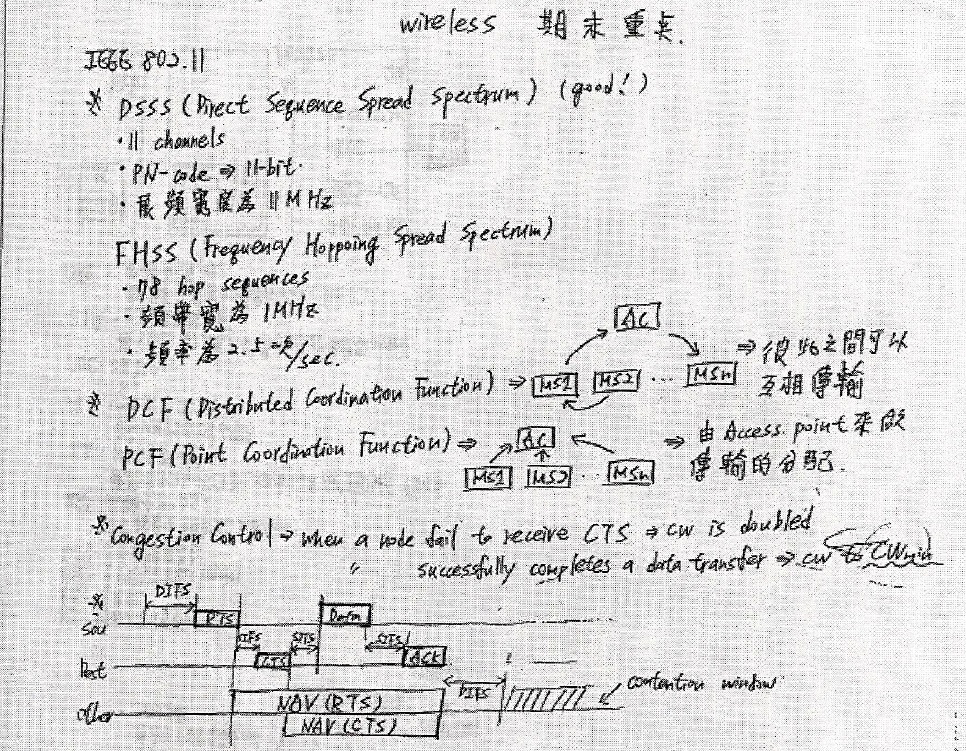 wireless 期末重点.
IEEE 802.11
※ DSSS (Direct Sequence Spread Spectrum) (good!)
・11 channels
・PN-code ⇒ 11-bit.
・展頻寬度為 11MHz
FHSS (Frequency Hoppoing Spread Spectrum)
・78 hop sequences
・頻帶寬為 1MHz
・頻率為 2.5次/sec.
※ DCF (Distributed Coordination Function) ⇒
AC
MS1 MS2 ... MSn
⇒ 彼此之間可以
互相傳輸
PCF (Point Coordination Function) ⇒
AC
MS1 MS2 ... MSn
⇒ 由 Access point 來做
傳輸的分配.
※ Congestion Control ⇒ when a node fail to receive CTS ⇒ CW is doubled
〃 successfully completes a data transfer ⇒ CW to CWmin
※ DIFS
Sou RTS Data
SIFS SIFS SIFS
Dest CTS ACK
DIFS contention window
other NAV (RTS)
NAV (CTS)